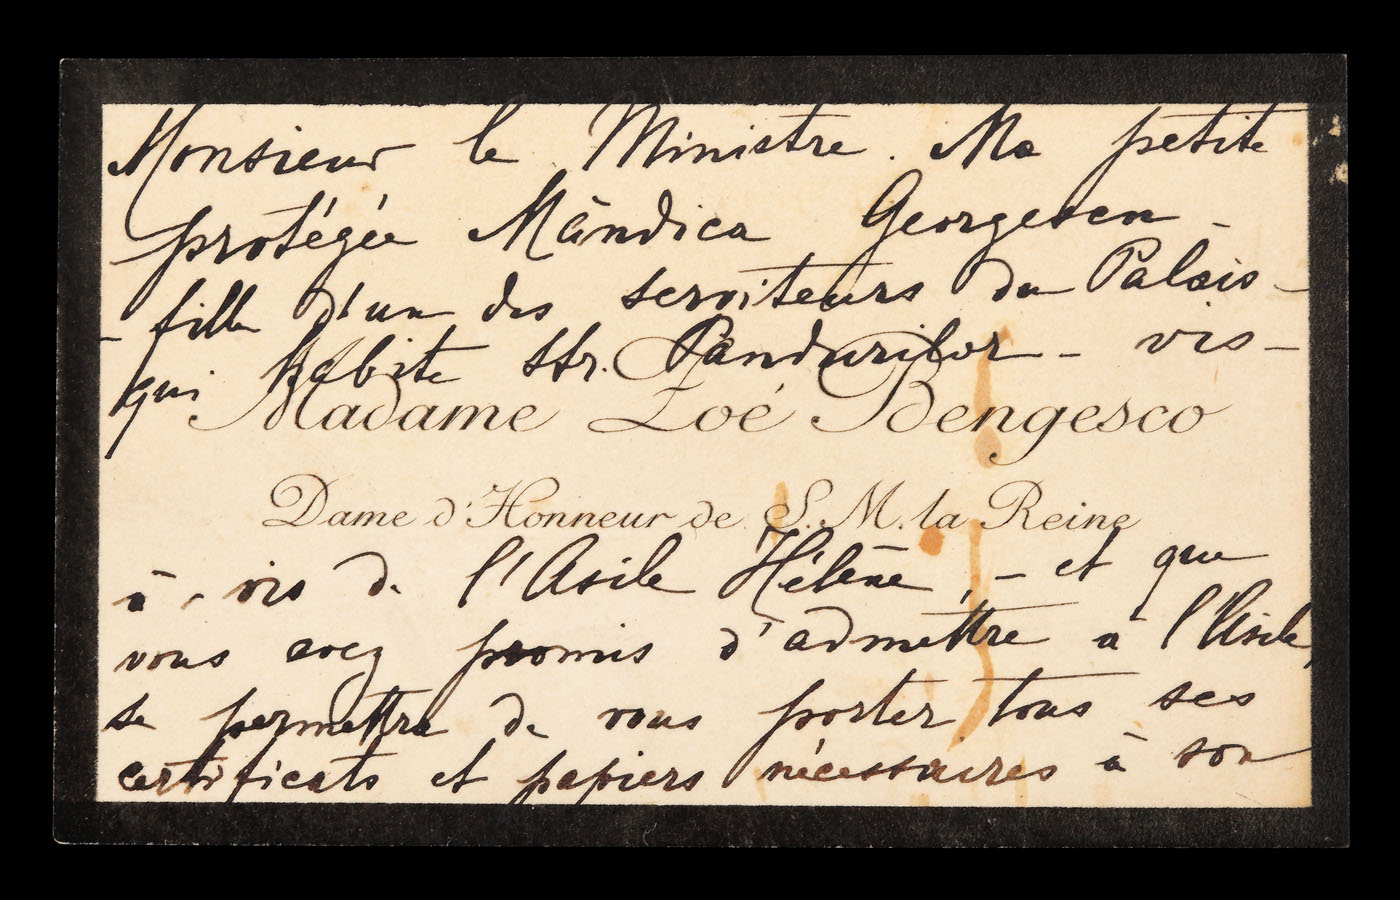 Monsieur le Ministre. Ma petite
protégée Mândica Georgescu -
- fille d'un des serviteurs du Palais -
qui habite Str. Pandurilor - vis -
Madame Zoé Bengesco
Dame d'Honneur de S. M. la Reine
à - vis de l'Asile Hélène, - et que
vous avez promis d'admettre à l'Asile,
se permettra de vous porter tous ses
certificats et papiers nécessaires à son